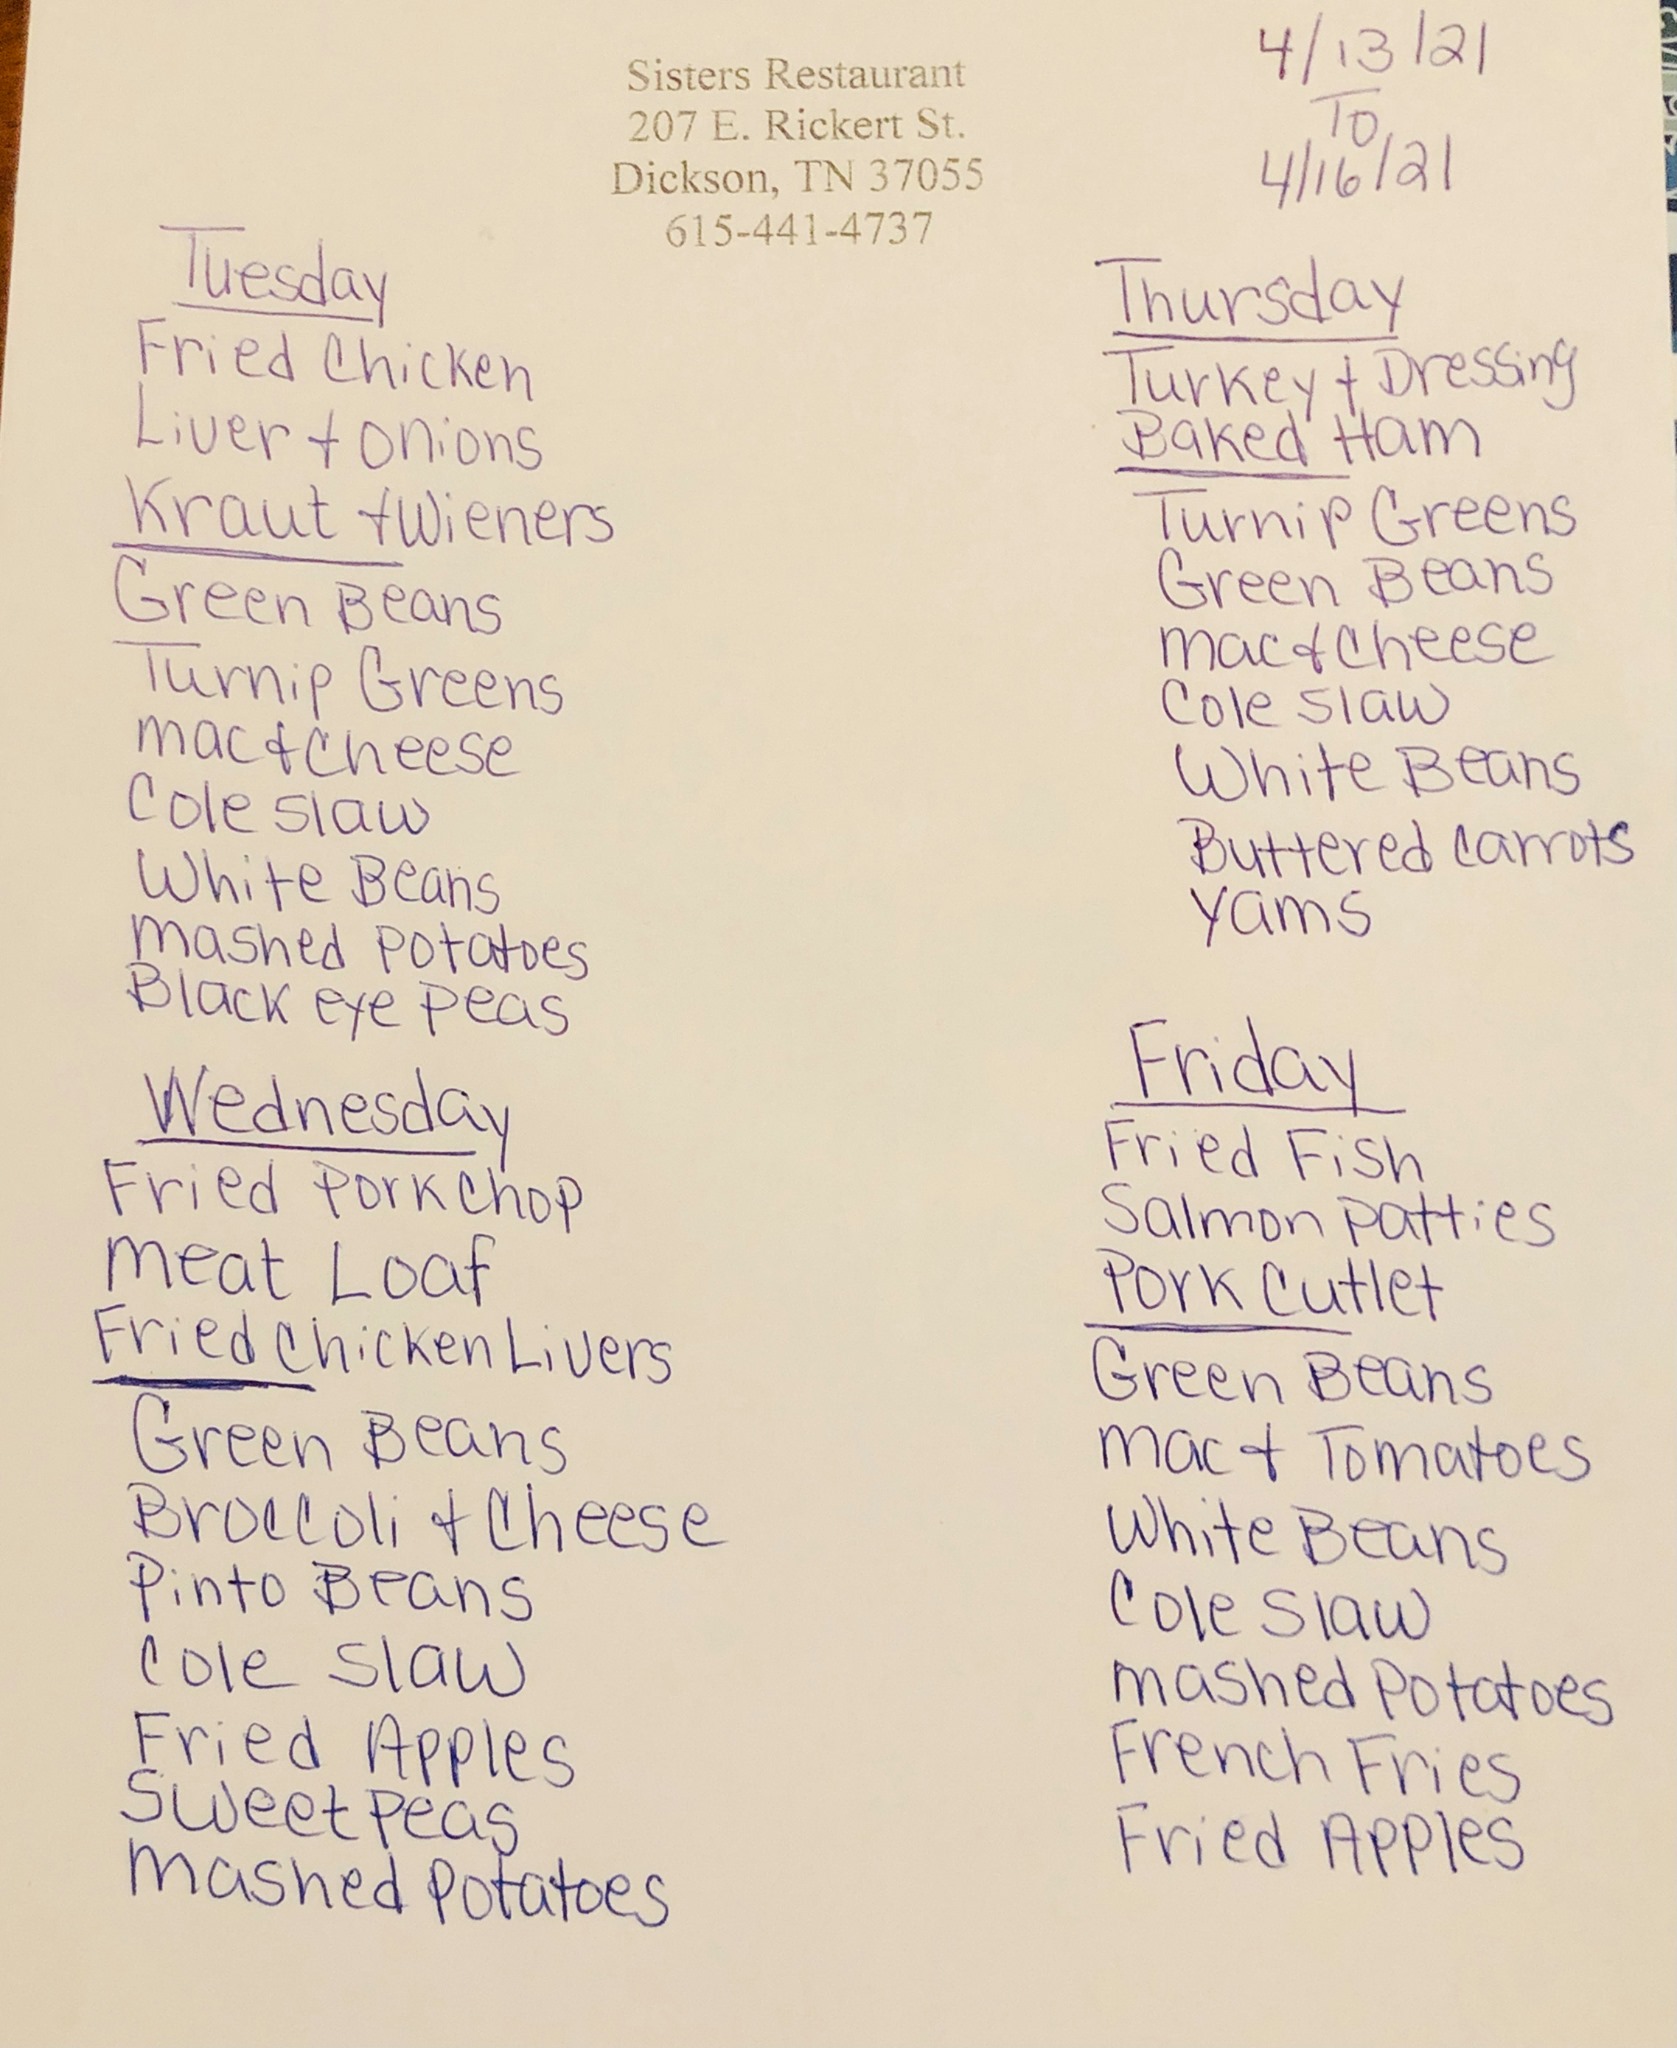 Sisters Restaurant
207 E. Rickert St.
Dickson, TN 37055
615-441-4737
4/13/21
TO
4/16/21
Tuesday
Fried Chicken
Liver + Onions
Kraut + Wieners
Green Beans
Turnip Greens
Mac + Cheese
Cole Slaw
White Beans
Mashed Potatoes
Black eye Peas
Wednesday
Fried Pork Chop
Meat Loaf
Fried Chicken Livers
Green Beans
Broccoli + Cheese
Pinto Beans
Cole Slaw
Fried Apples
Sweet Peas
Mashed Potatoes
Thursday
Turkey + Dressing
Baked Ham
Turnip Greens
Green Beans
Mac + Cheese
Cole Slaw
White Beans
Buttered Carrots
Yams
Friday
Fried Fish
Salmon Patties
Pork Cutlet
Green Beans
Mac + Tomatoes
White Beans
Cole Slaw
Mashed Potatoes
French Fries
Fried Apples